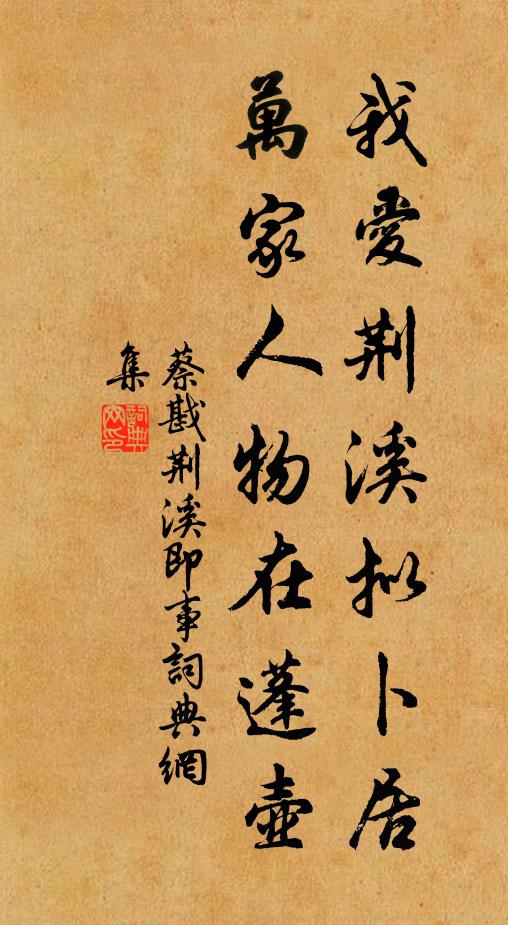 我愛荆溪拟卜居
萬家人物在蓬壺
蔡戡荆溪即事詞典網
集
詞典網印